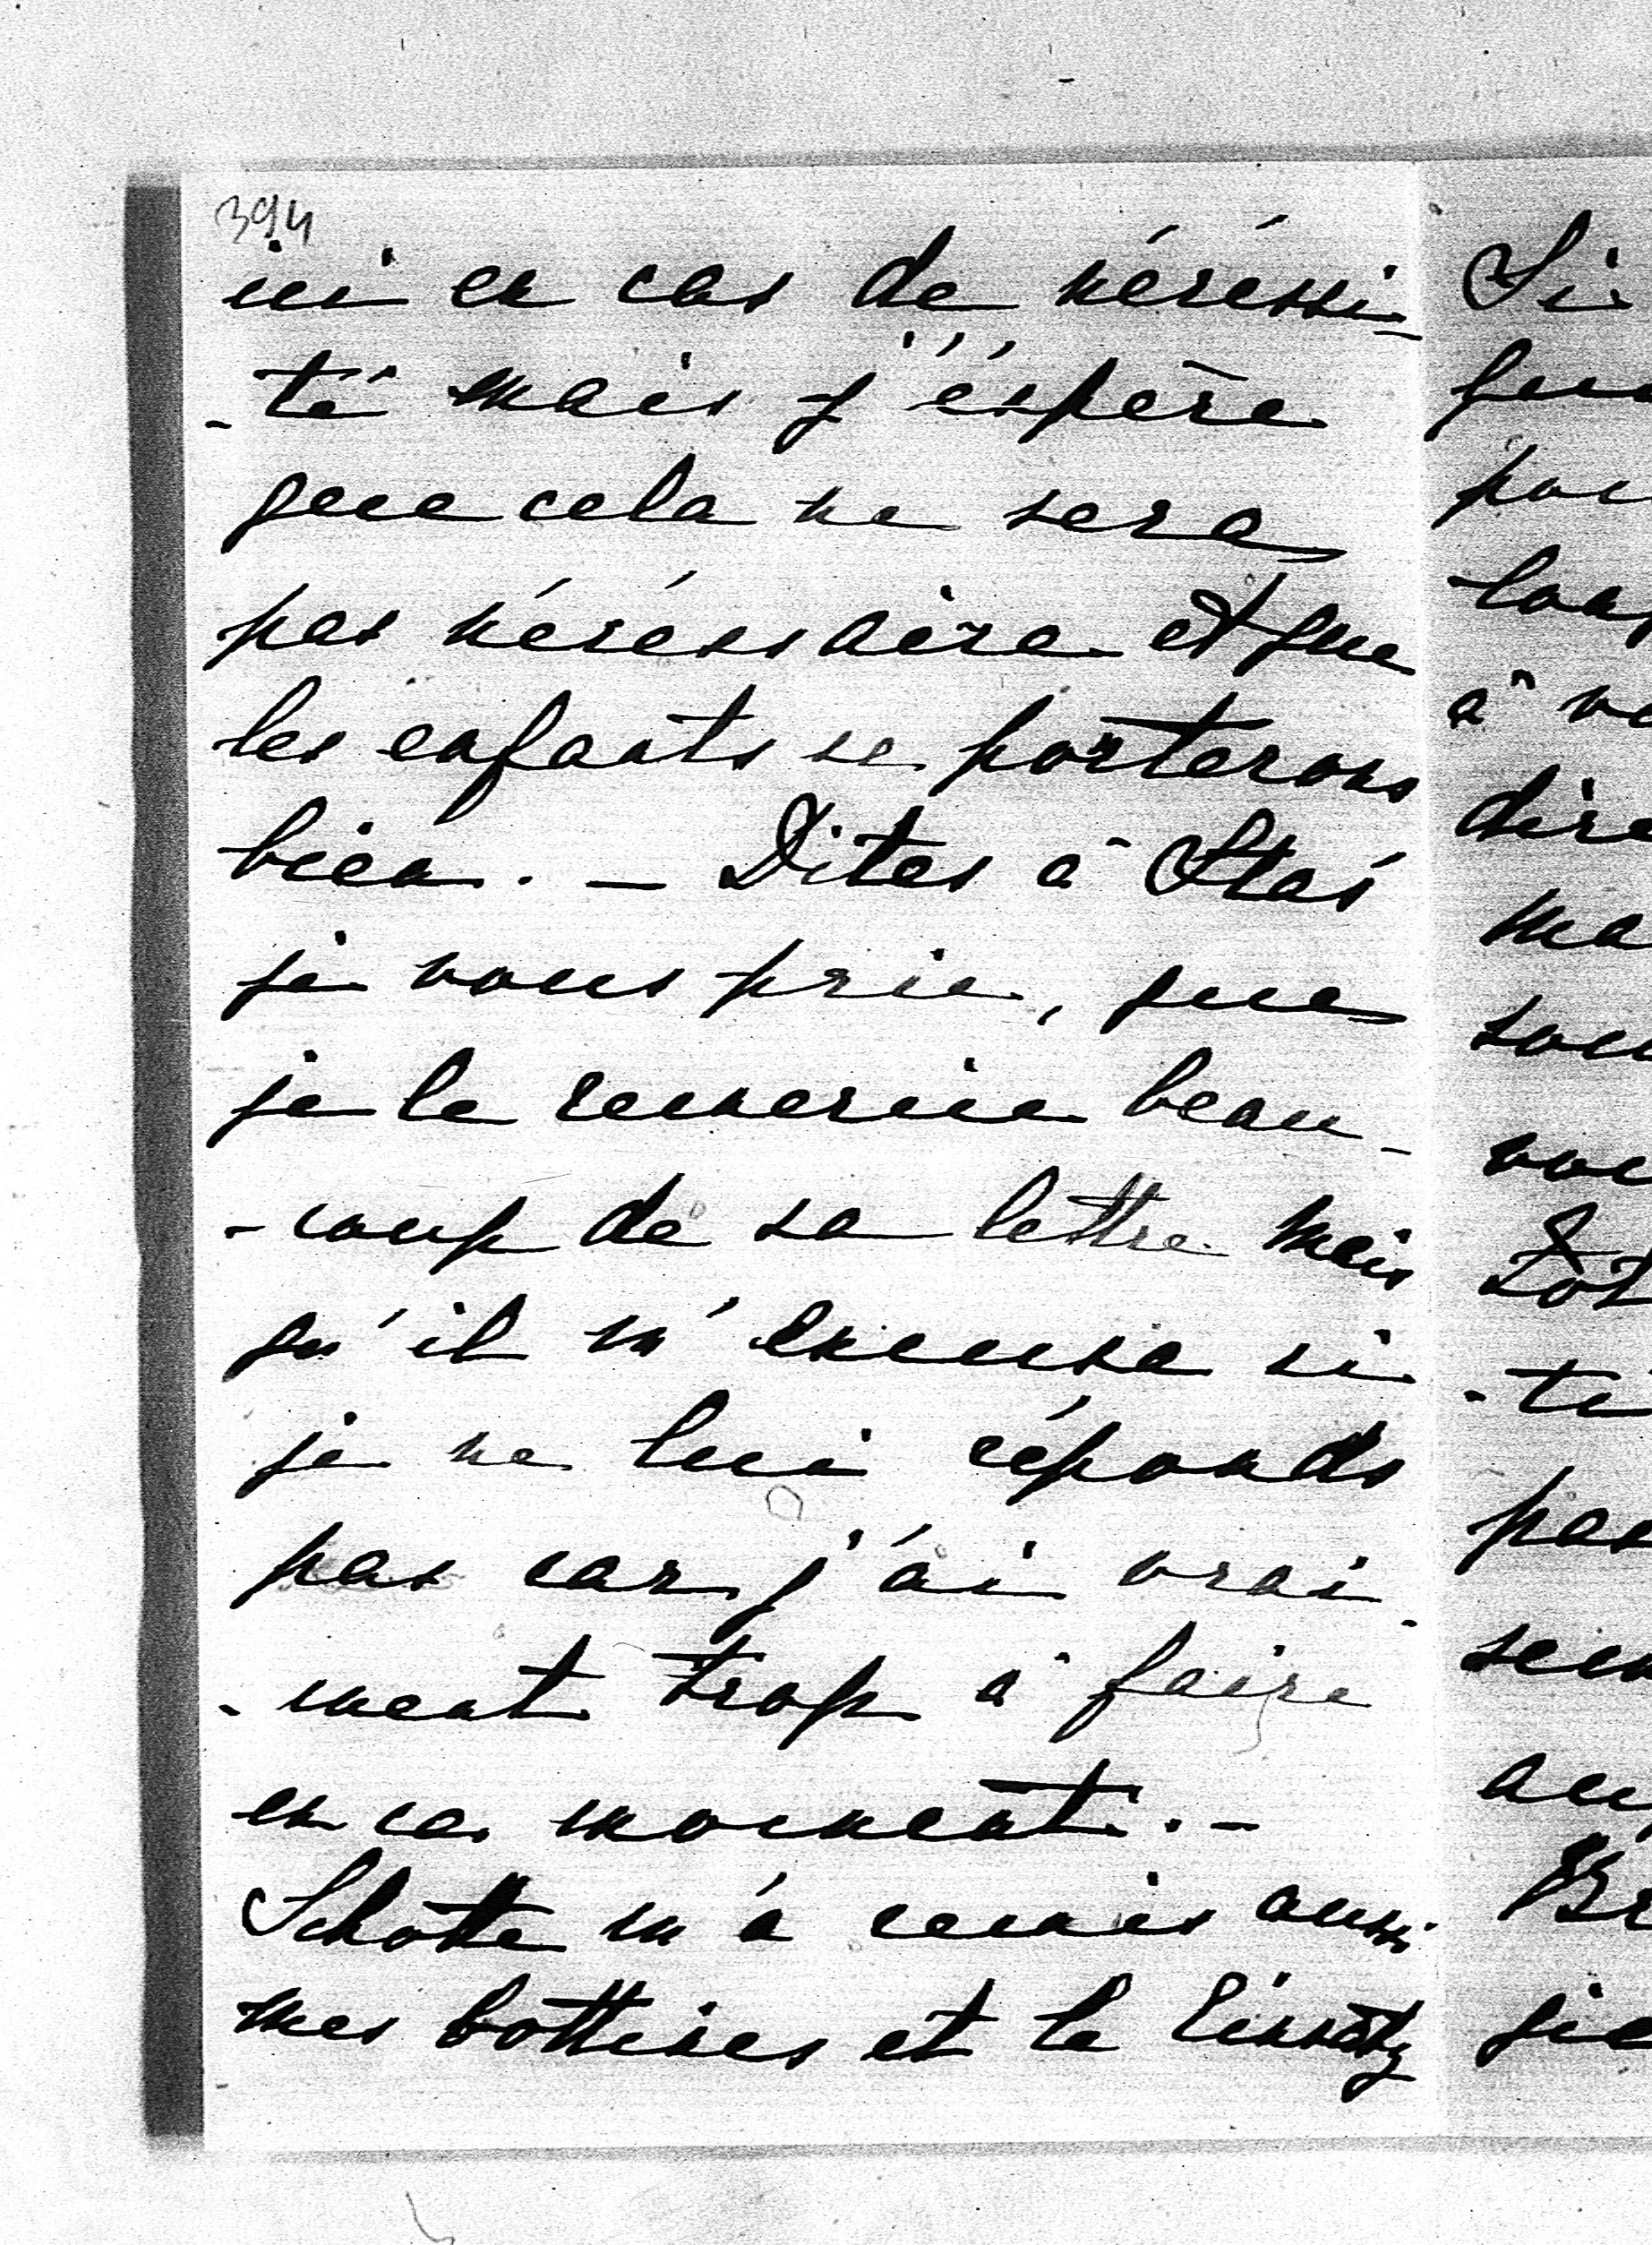 394
ici en cas de nécéssi-
-té mais j'éspère
que cela ne sera
pas nécéssaire et que
les enfants se porterons
bien. — Dites à Staś
je vous prie, que
je le remercie beau-
-coup de sa lettre mais
qu'il m'excuse si
je ne lui réponds
pas car j'ai vrai-
-ment trop à faire
en ce moment. –
Schotte m'a remis aussi
mes bottines et le
Si
à
dire
ma
-té
pas